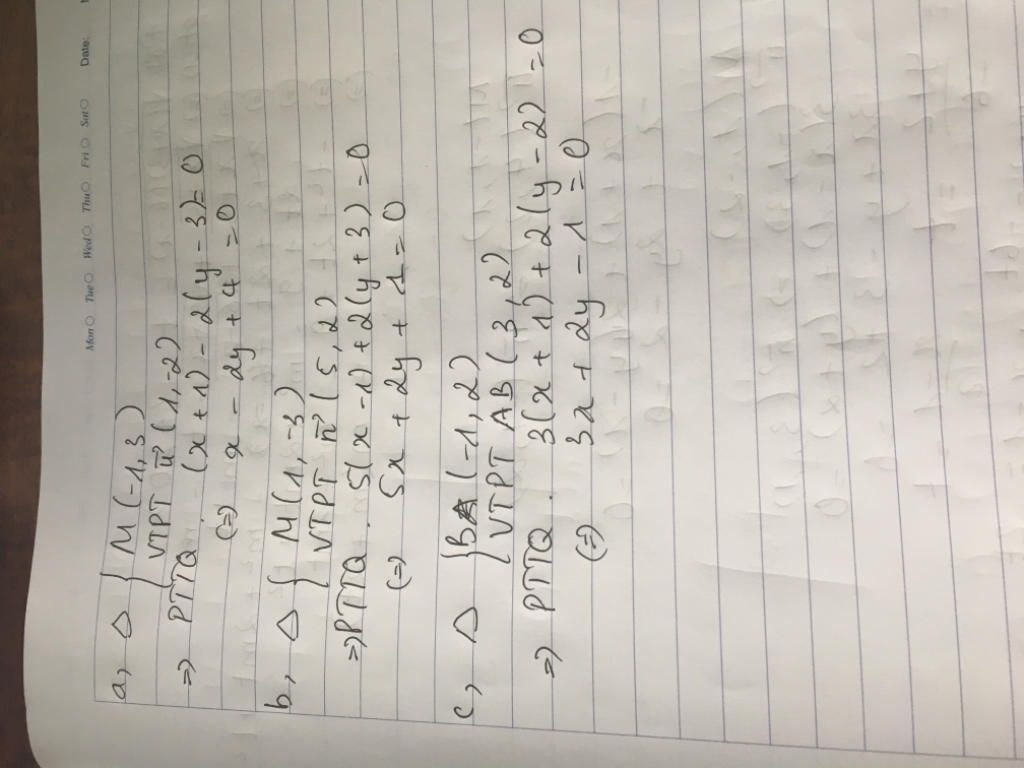 Mon Tue Wed Thu Fri Sat Date:
a, Δ { M (-1, 3)
VTPT n⃗ (1, -2)
=> PTTQ (x + 1) - 2(y - 3) = 0
(=) x - 2y + 4 = 0
b, Δ { M (1, -3)
VTPT n⃗ (5, 2)
=> PTTQ. 5(x - 1) + 2(y + 3) = 0
(=) 5x + 2y + 1 = 0
c, Δ { B (-1, 2)
VTPT AB (3, 2)
=> PTTQ. 3(x + 1) + 2(y - 2) = 0
(=) 3x + 2y - 1 = 0